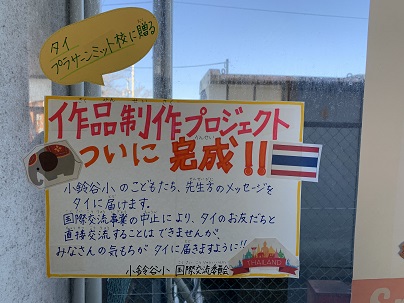 タイ
プラサーンミット校に贈る
作品制作プロジェクト
ついに完成!!
小鈴谷小のこどもたち、先生方のメッセージを
タイに届けます。
国際交流事業の中止により、タイのお友だちと
直接交流することはできませんが、
みなさんの気もちがタイに届きますように!!
小鈴谷小 国際交流委員会
THAILAND